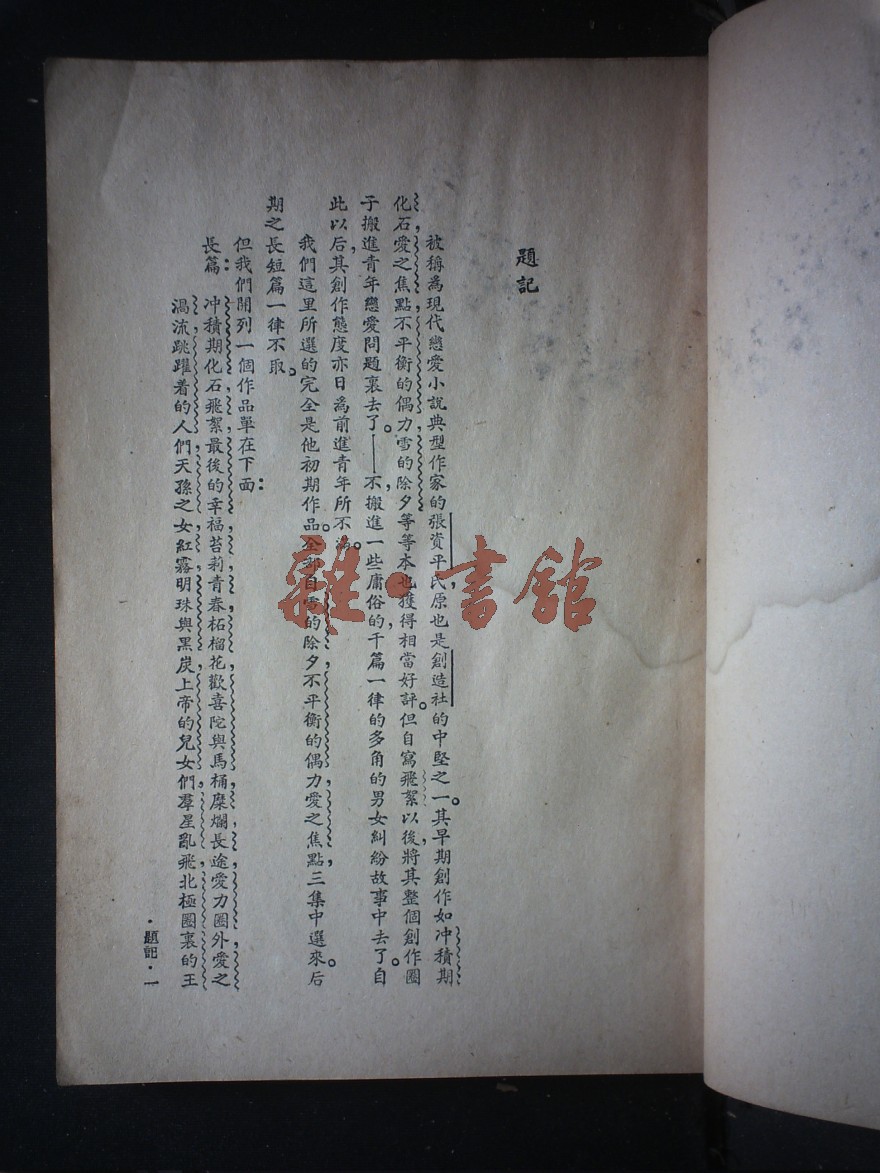 題記
被稱為現代戀愛小說典型作家的張資平氏，原也是創造社的中堅之一。其早期創作如冲積期
化石，愛之焦點，不平衡的偶力，雪的除夕等等本也獲得相當好評。但自寫飛絮以後，將其整個創作圈
子搬進青年戀愛問題裏去了。——不，搬進一些庸俗的，千篇一律的多角的男女糾紛故事中去了。自
此以后，其創作態度亦日為前進青年所不滿。
我們這里所選的完全是他初期作品。全部自雪的除夕，不平衡的偶力，愛之焦點三集中選來，后
期之長短篇一律不取。
但我們開列一個作品單在下面：
長篇：冲積期化石，飛絮，最後的幸福，苔莉，青春，柘榴花，歡喜陀與馬桶，糜爛，長途，愛力圈外，愛之
渦流，跳躍着的人們，天孫之女，紅霧，明珠與黑炭，上帝的兒女們，羣星亂飛，北極圈裏的王
·題記·一
雜·書館